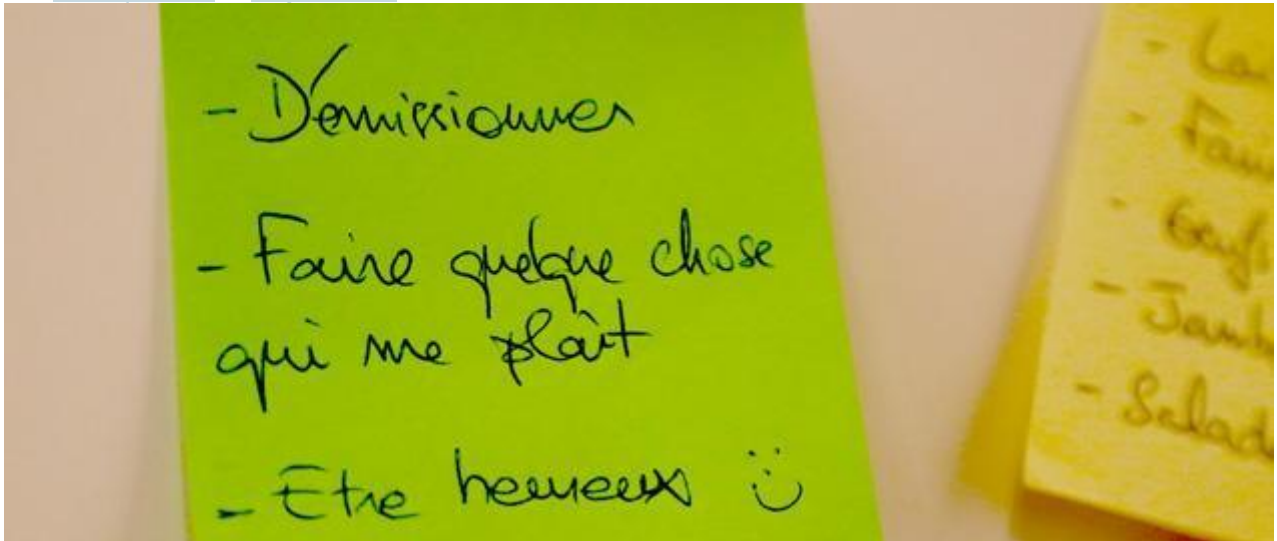 - Démissionner
- Faire quelque chose
qui me plaît
- Etre heureux
- Salade